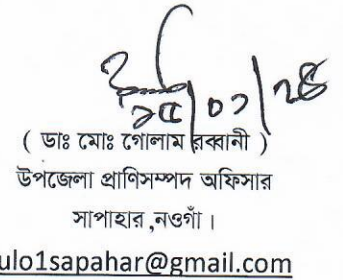 ( ডাঃ মোঃ গোলাম রব্বানী )
উপজেলা প্রাণিসম্পদ অফিসার
সাপাহার ,নওগাঁ ।
ulo1sapahar@gmail.com